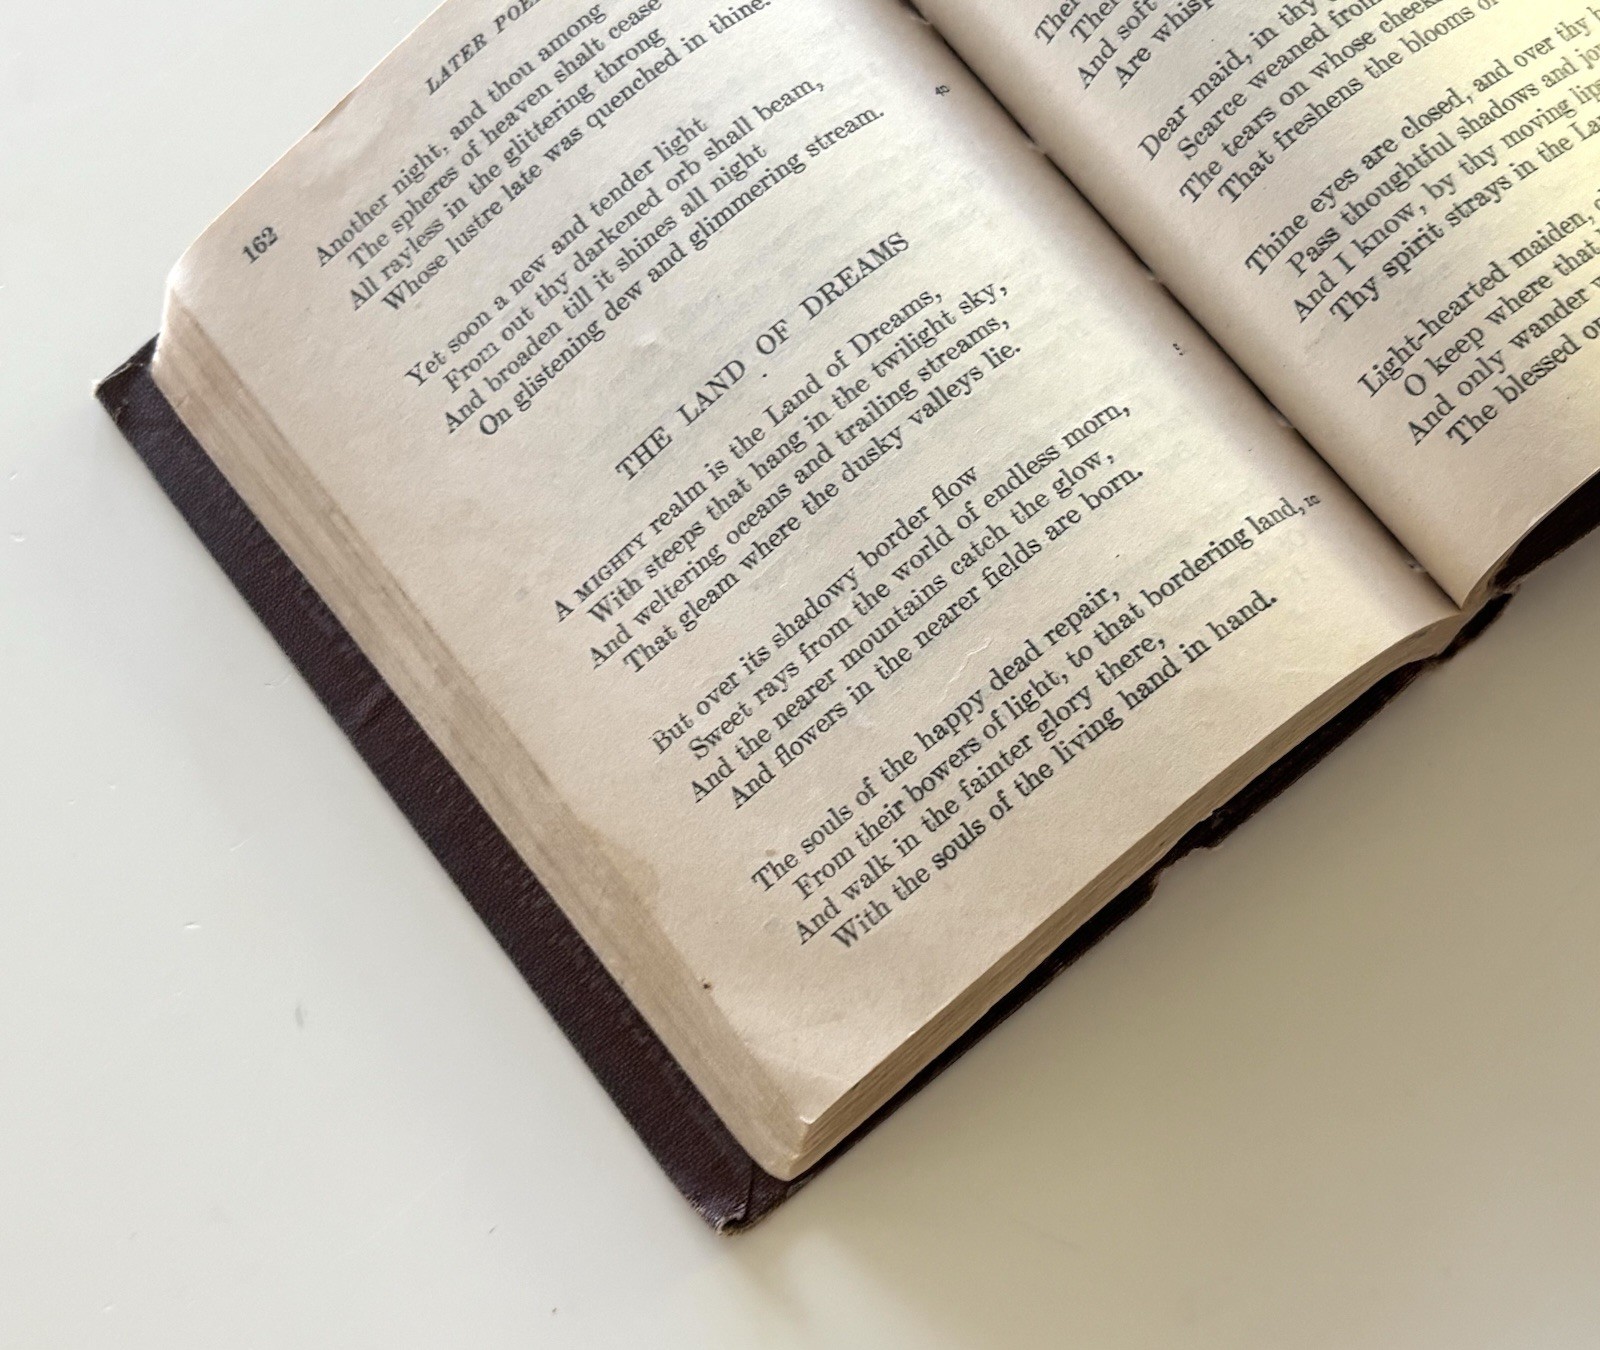 162
LATER
Another night, and thou among
The spheres of heaven shalt cease
All rayless in the glittering throng
Whose lustre late was quenched in thine.
Yet soon a new and tender light
From out thy darkened orb shall beam,
40
And broaden till it shines all night
On glistening dew and glimmering stream.
THE LAND OF DREAMS
A MIGHTY realm is the Land of Dreams,
With steeps that hang in the twilight sky,
And weltering oceans and trailing streams,
That gleam where the dusky valleys lie.
But over its shadowy border flow
5
Sweet rays from the world of endless morn,
And the nearer mountains catch the glow,
And flowers in the nearer fields are born.
The souls of the happy dead repair,
From their bowers of light, to that bordering land, 10
And walk in the fainter glory there,
With the souls of the living hand in hand.
And soft
Are
Dear maid, in thy
Scarce weaned from
The tears on whose cheek
That freshens the blooms
Thine eyes are closed, and over thy
Pass thoughtful shadows and
And I know, by thy moving
Thy spirit strays in the
Light-hearted maiden,
O keep where that
And only wander
The blessed